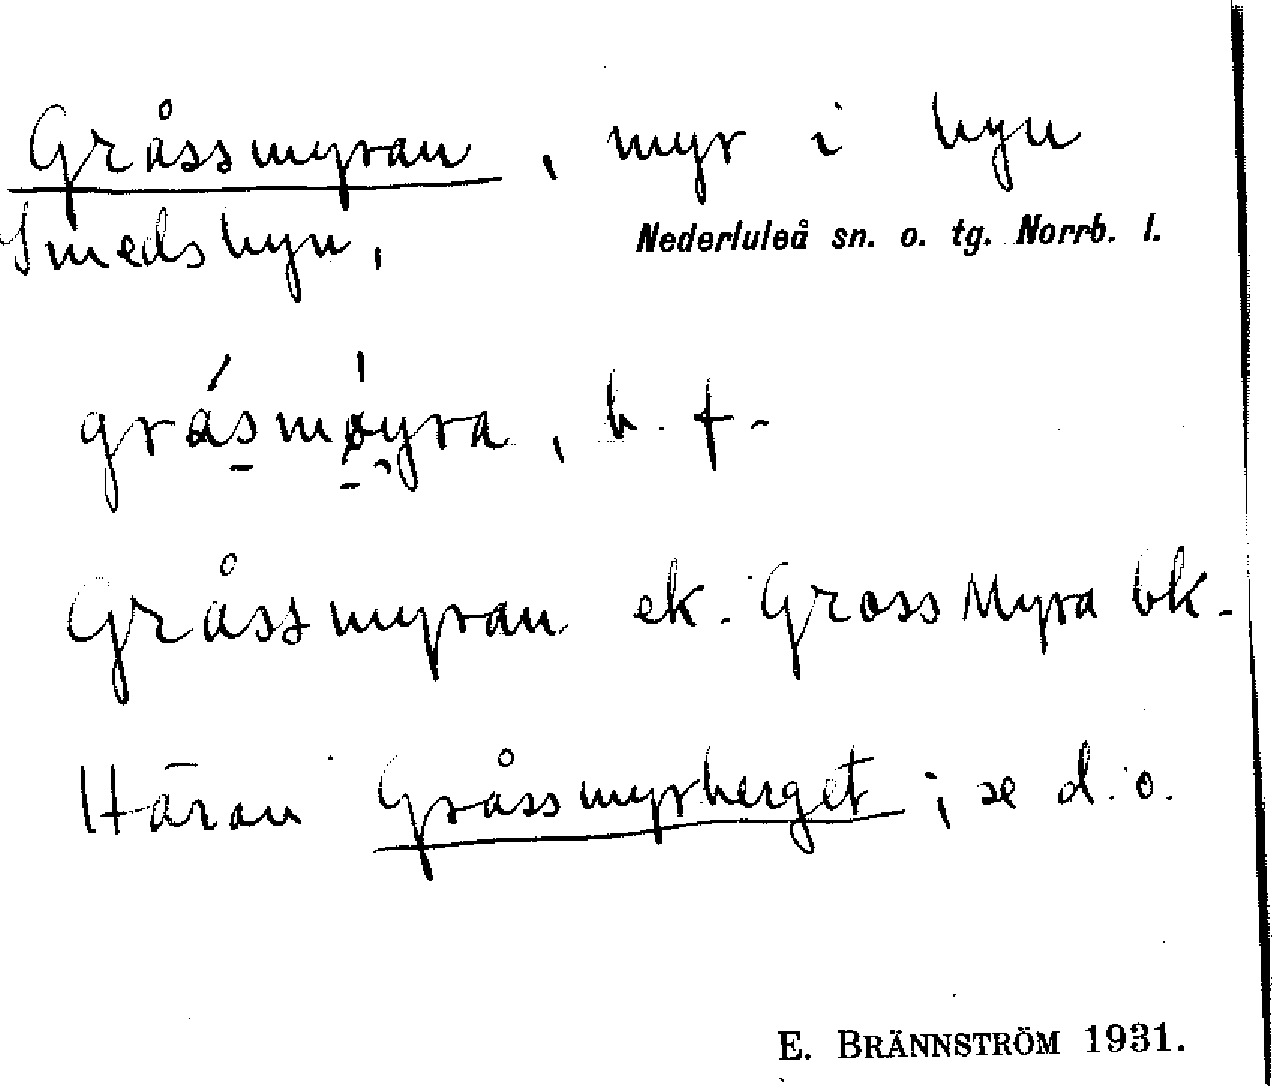 Gråssmyran, myr i byn
Smedsbyn, Nederluleå sn. o. tg. Norrb. l.
grásmøyra, b. f.
Gråssmyran ek. Gross Myra bk.
Häran Gråssmyrberget; se d. o.
E. BRÄNNSTRÖM 1931.